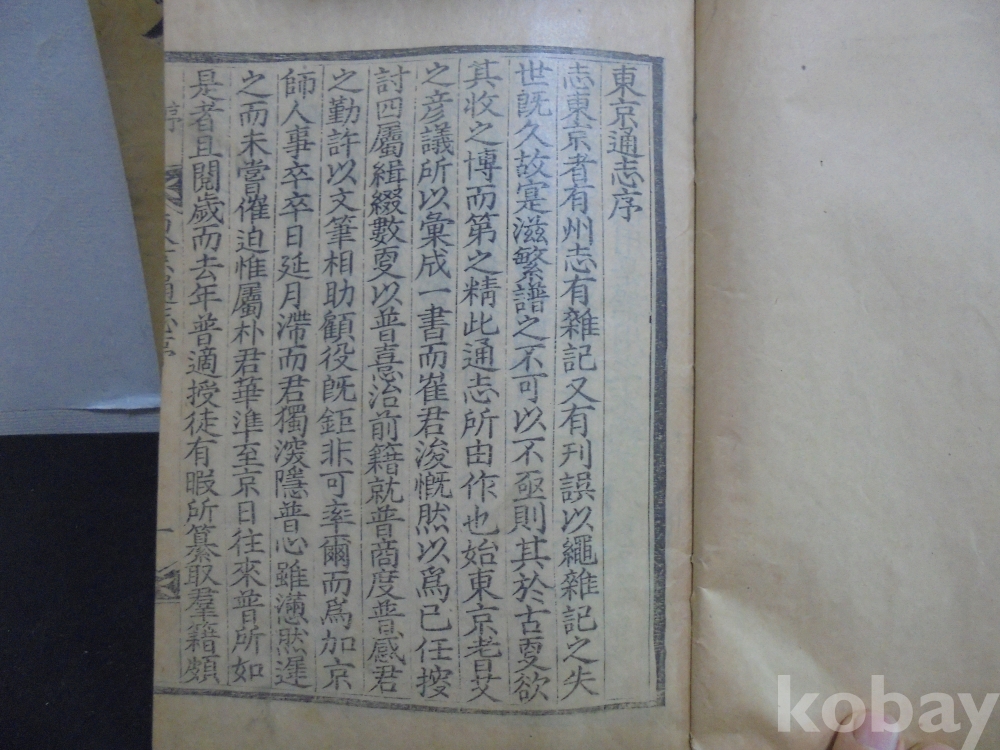 東京通志序
志東京者有州志有雜記又有刊誤以繩雜記之失
世旣久故寔滋繁譜之不可以不亟則其於古叓欲
其收之博而第之精此通志所由作也始東京耆艾
之彦議所以彙成一書而崔君浚慨然以爲己任搜
討四屬緝綴數叓以普憙治前籍就普商度普感君
之勤許以文筆相助顧役旣鉅非可率爾而爲加京
師人事卒卒日延月滯而君獨深隱普心雖懣然遲
之而未嘗催迫惟屬朴君華準至京日往來普所如
是者且閱歲而去年普適授徒有暇所纂取羣籍頗
序
一
kobay